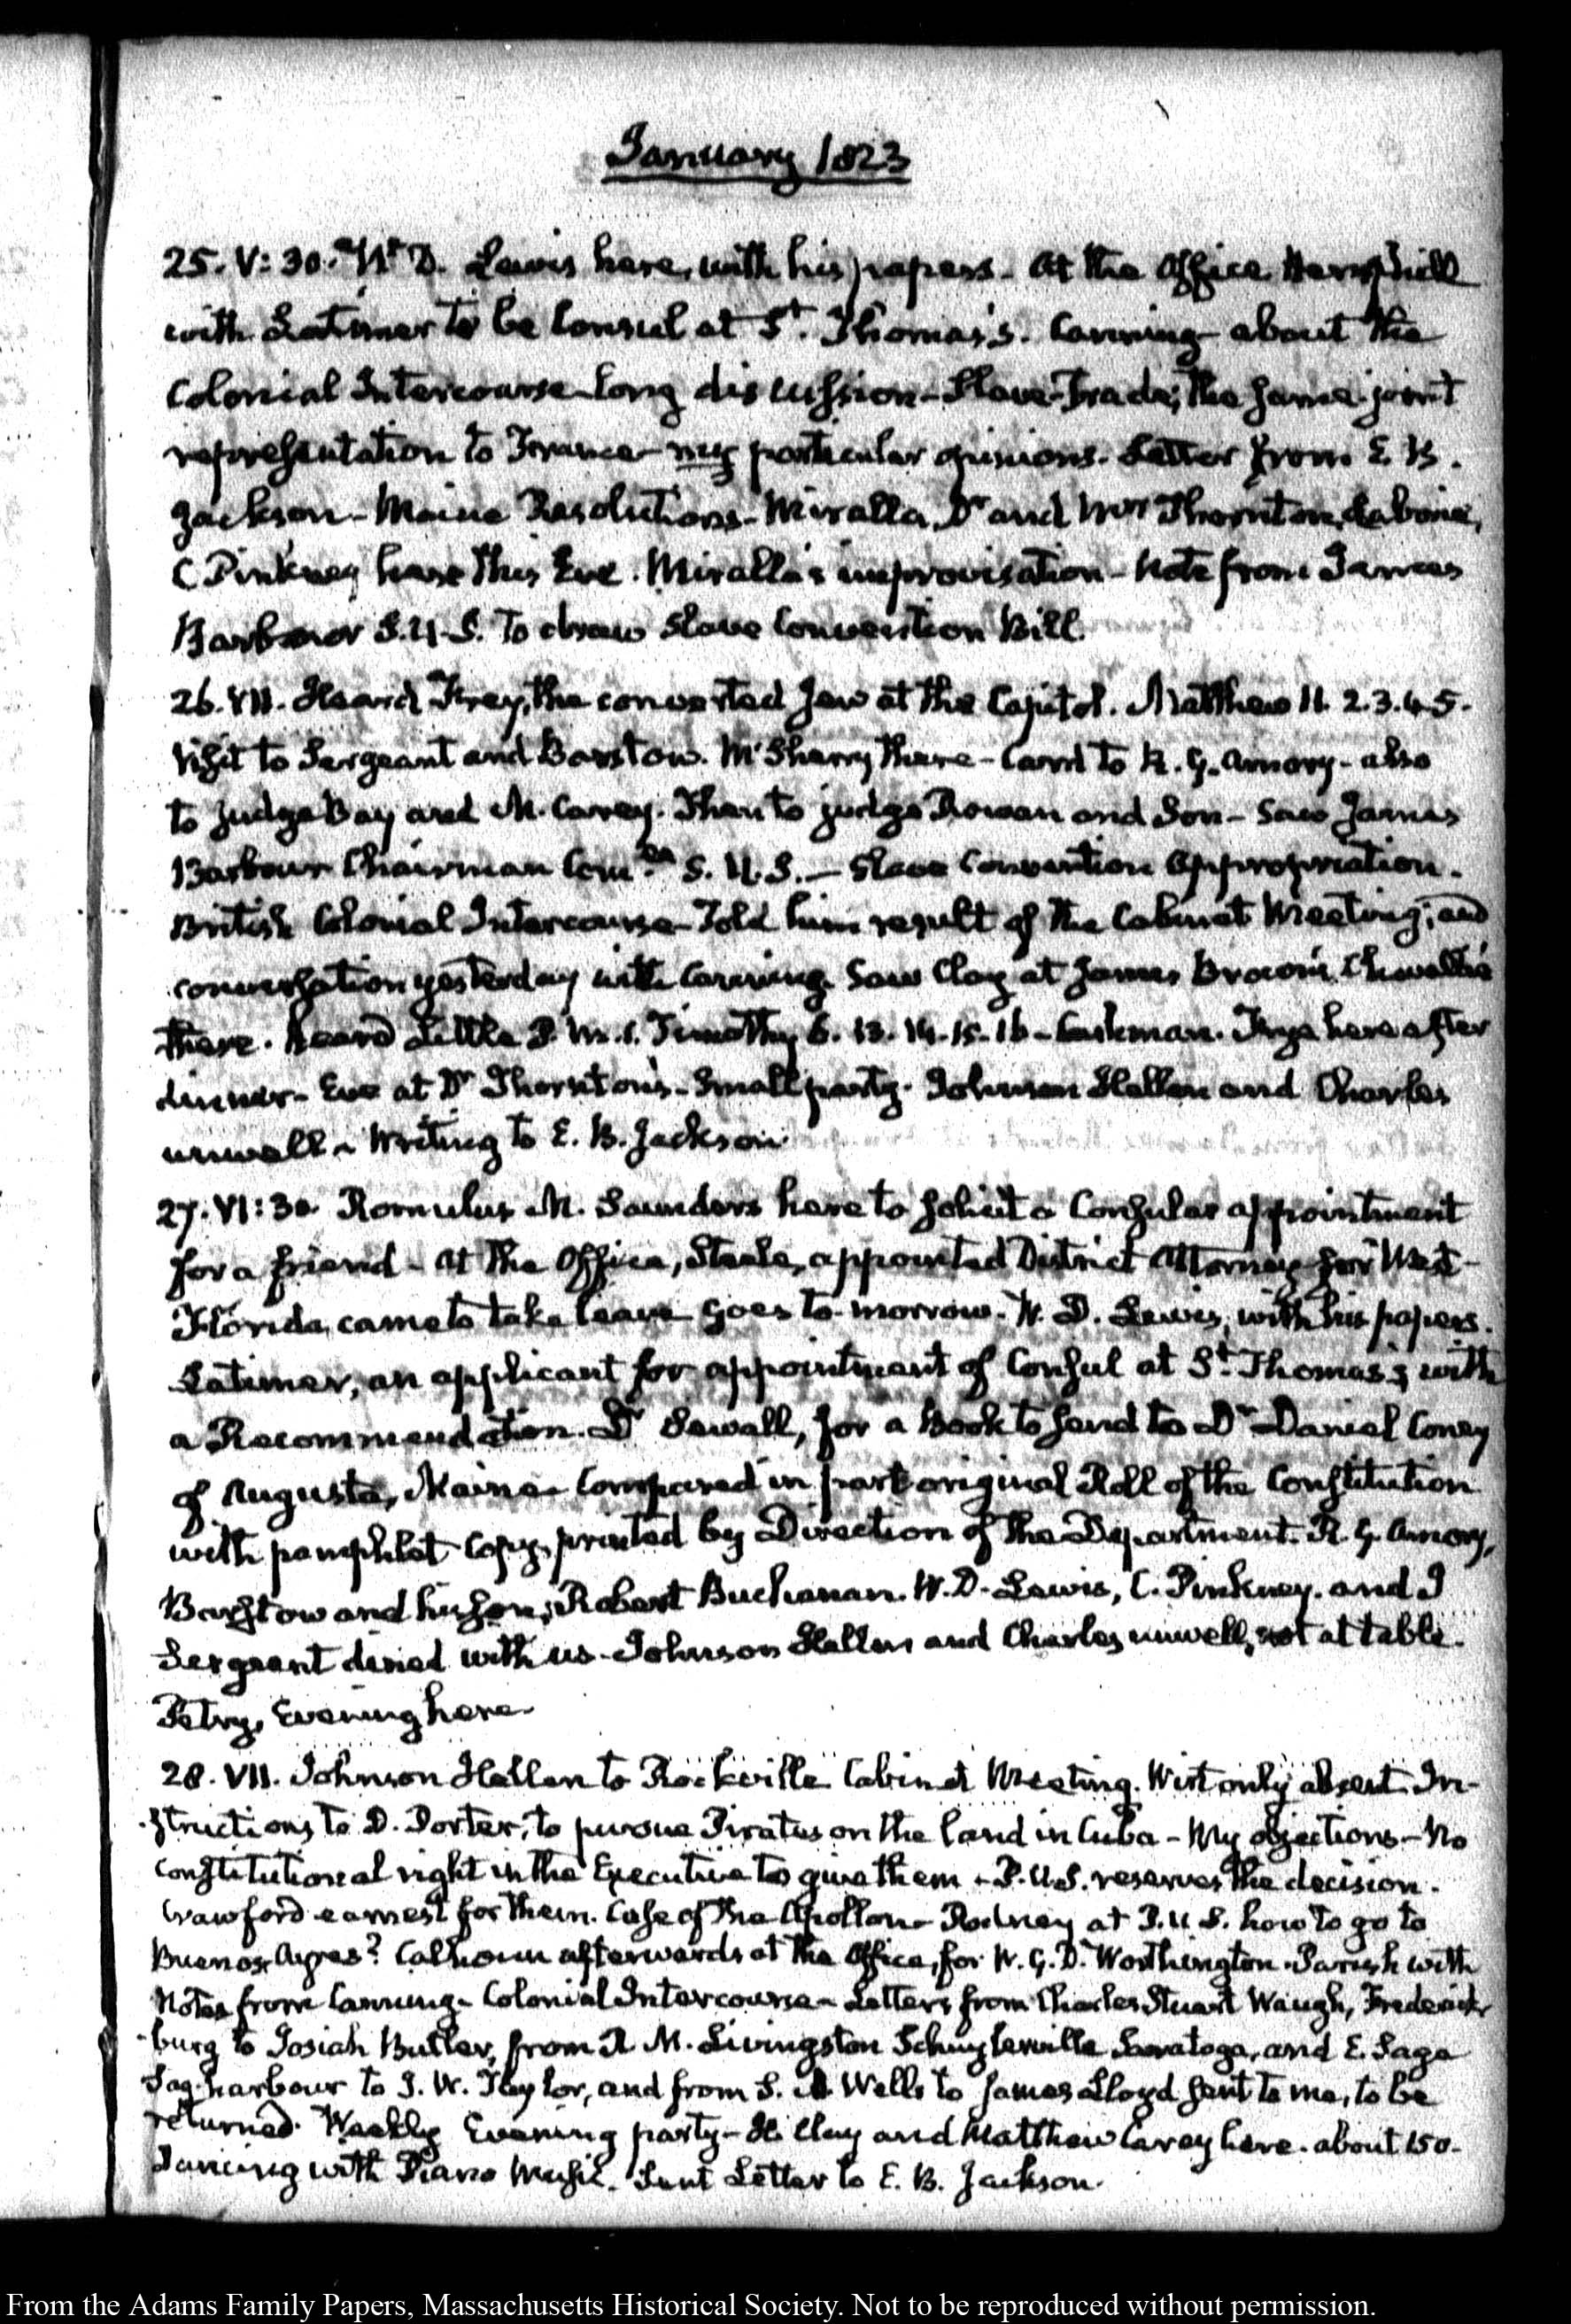 January 1823
25. V: 30. Wm D. Lewis here, with his papers - At the Office Hemphill
with Latimer to be Consul at St. Thomas's. Canning about the
Colonial Intercourse - long discussion - Slave-Trade; the same joint
representation to France - my particular opinions. Letter from E. B.
Jackson - Maine Resolutions - Miralla, Dr and Mrs Thornton,
C Pinkney here this Eve. Miralla's improvisation - Note from James
Barbour S.U.S. to draw Slave Convention Bill.
26. VII. Heard Frey, the converted Jew at the Capitol. Matthew 11. 2. 3. 4. 5.
Visit to Sergeant and Barstow. McSherry there - Card to R. G. Amory - also
to Judge Bay and M. Carey. Then to judge Rowan and Son - Saw James
Barbour Chairman S. U. S. - Slave Convention Appropriation.
British Colonial Intercourse - Told him result of the Cabinet Meeting; and
conversation yesterday with Canning. Saw Clay at James Brown's.
there. heard Little P. M. 1. Timothy 6. 13. 14. 15. 16 - Cushman. Frye here after
dinner - Eve at Dr Thornton's - Small party. Johnson Hellen and Charles
unwell - Writing to E. B. Jackson.
27. VI: 30. Romulus M. Saunders here to solicit a Consular appointment
for a friend - At the Office, Steele, appointed District Attorney for West-
Florida, came to take leave goes to-morrow. W. D. Lewis, with his papers.
Latimer, an applicant for appointment of Consul at St. Thomas's; with
a Recommendation. Dr Sewall, for a Book to send to Dr Daniel Coney
of Augusta, Maine - Compared in part original Roll of the Constitution
with pamphlet Copy, printed by Direction of the Department. R. G. Amory,
Barstow and his son, Robert Buchanan. W. D. Lewis, C. Pinkney. and J
Sergeant dined with us. Johnson Hellen and Charles unwell, not at table.
Petry, Evening here.
28. VII. Johnson Hellen to Rockville. Cabinet Meeting. Wirt only absent. In-
structions to D. Porter, to pursue Pirates on the land in Cuba - My objections - No
constitutional right in the Executive to give them - P. U.S. reserves the decision.
Crawford earnest for them. Case of the Apollon - Rodney at P. U S. how to go to
Buenos Ayres? Calhoun afterwards at the Office, for W. G. D. Worthington. Parish with
Notes from Canning - Colonial Intercourse - Letters from Charles Stuart Waugh, Frederick-
-burg to Josiah Butler, from R M. Livingston Schuylerville Saratoga, and E. Sage
Sag-harbour to J. W. Taylor, and from S. A. Wells to James Lloyd sent to me, to be
returned. Weekly Evening party - H. Clay and Matthew Carey here. about 150.
Dancing with Piano Music. Sent Letter to E. B. Jackson.
From the Adams Family Papers, Massachusetts Historical Society. Not to be reproduced without permission.